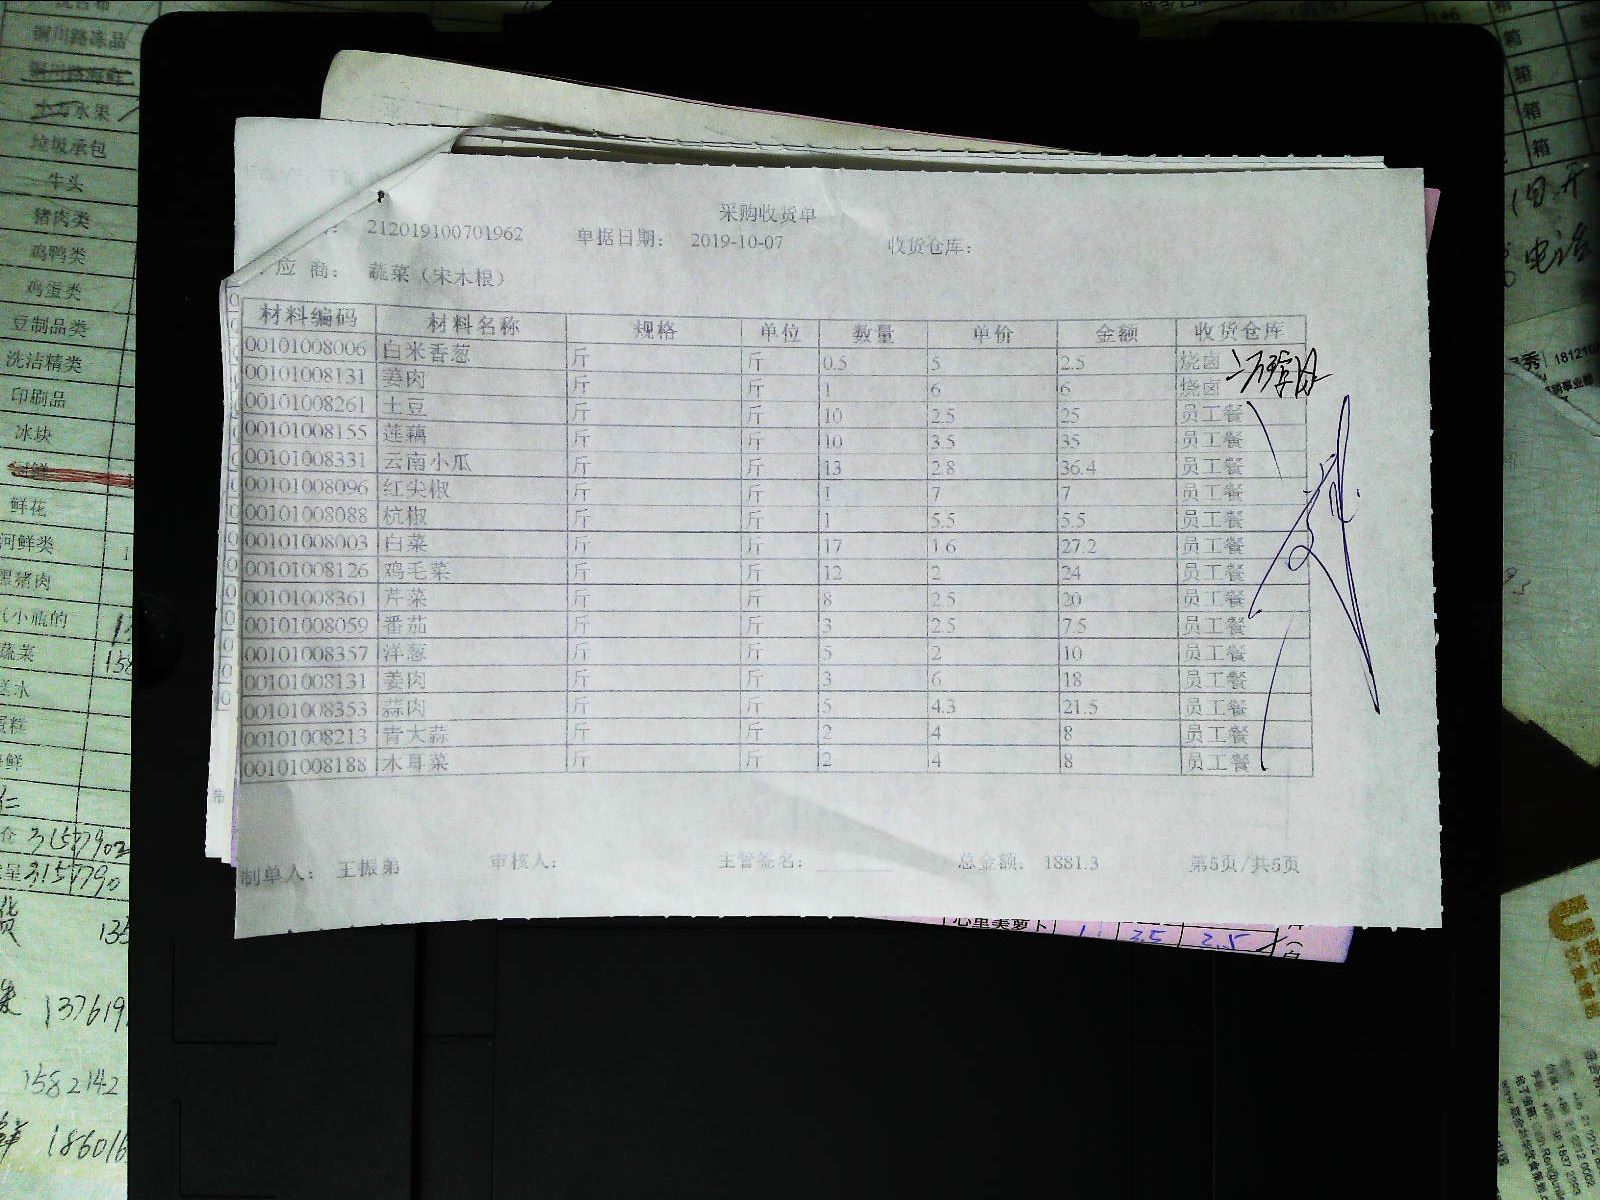 采购收货单
212019100701962 单据日期： 2019-10-07 收货仓库：
应 商： 蔬菜（宋木根）
材料编码 材料名称 规格 单位 数量 单价 金额 收货仓库
00101008006 白米香葱 斤 斤 0.5 5 2.5 烧卤
00101008131 姜肉 斤 斤 1 6 6 烧卤
00101008261 土豆 斤 斤 10 2.5 25 员工餐
00101008155 莲藕 斤 斤 10 3.5 35 员工餐
00101008331 云南小瓜 斤 斤 13 2.8 36.4 员工餐
00101008096 红尖椒 斤 斤 1 7 7 员工餐
00101008088 杭椒 斤 斤 1 5.5 5.5 员工餐
00101008003 白菜 斤 斤 17 1.6 27.2 员工餐
00101008126 鸡毛菜 斤 斤 12 2 24 员工餐
00101008361 芹菜 斤 斤 8 2.5 20 员工餐
00101008059 番茄 斤 斤 3 2.5 7.5 员工餐
00101008357 洋葱 斤 斤 5 2 10 员工餐
00101008131 姜肉 斤 斤 3 6 18 员工餐
00101008353 蒜肉 斤 斤 5 4.3 21.5 员工餐
00101008213 青大蒜 斤 斤 2 4 8 员工餐
00101008188 木耳菜 斤 斤 2 4 8 员工餐
制单人： 王振弟 审核人： 主管签名： 总金额： 1881.3 第5页/共5页
心里美萝卜 1 2.5 2.5
铜川路冻品
水果
垃圾承包
牛头
猪肉类
鸡鸭类
鸡蛋类
豆制品类
洗洁精类
印刷品
冰块
鲜花
河鲜类
黑猪肉
小瓶的
蔬菜
蛋糕
31557902
31557790
135
137619
1582142
186016
箱
箱
箱
箱
电话